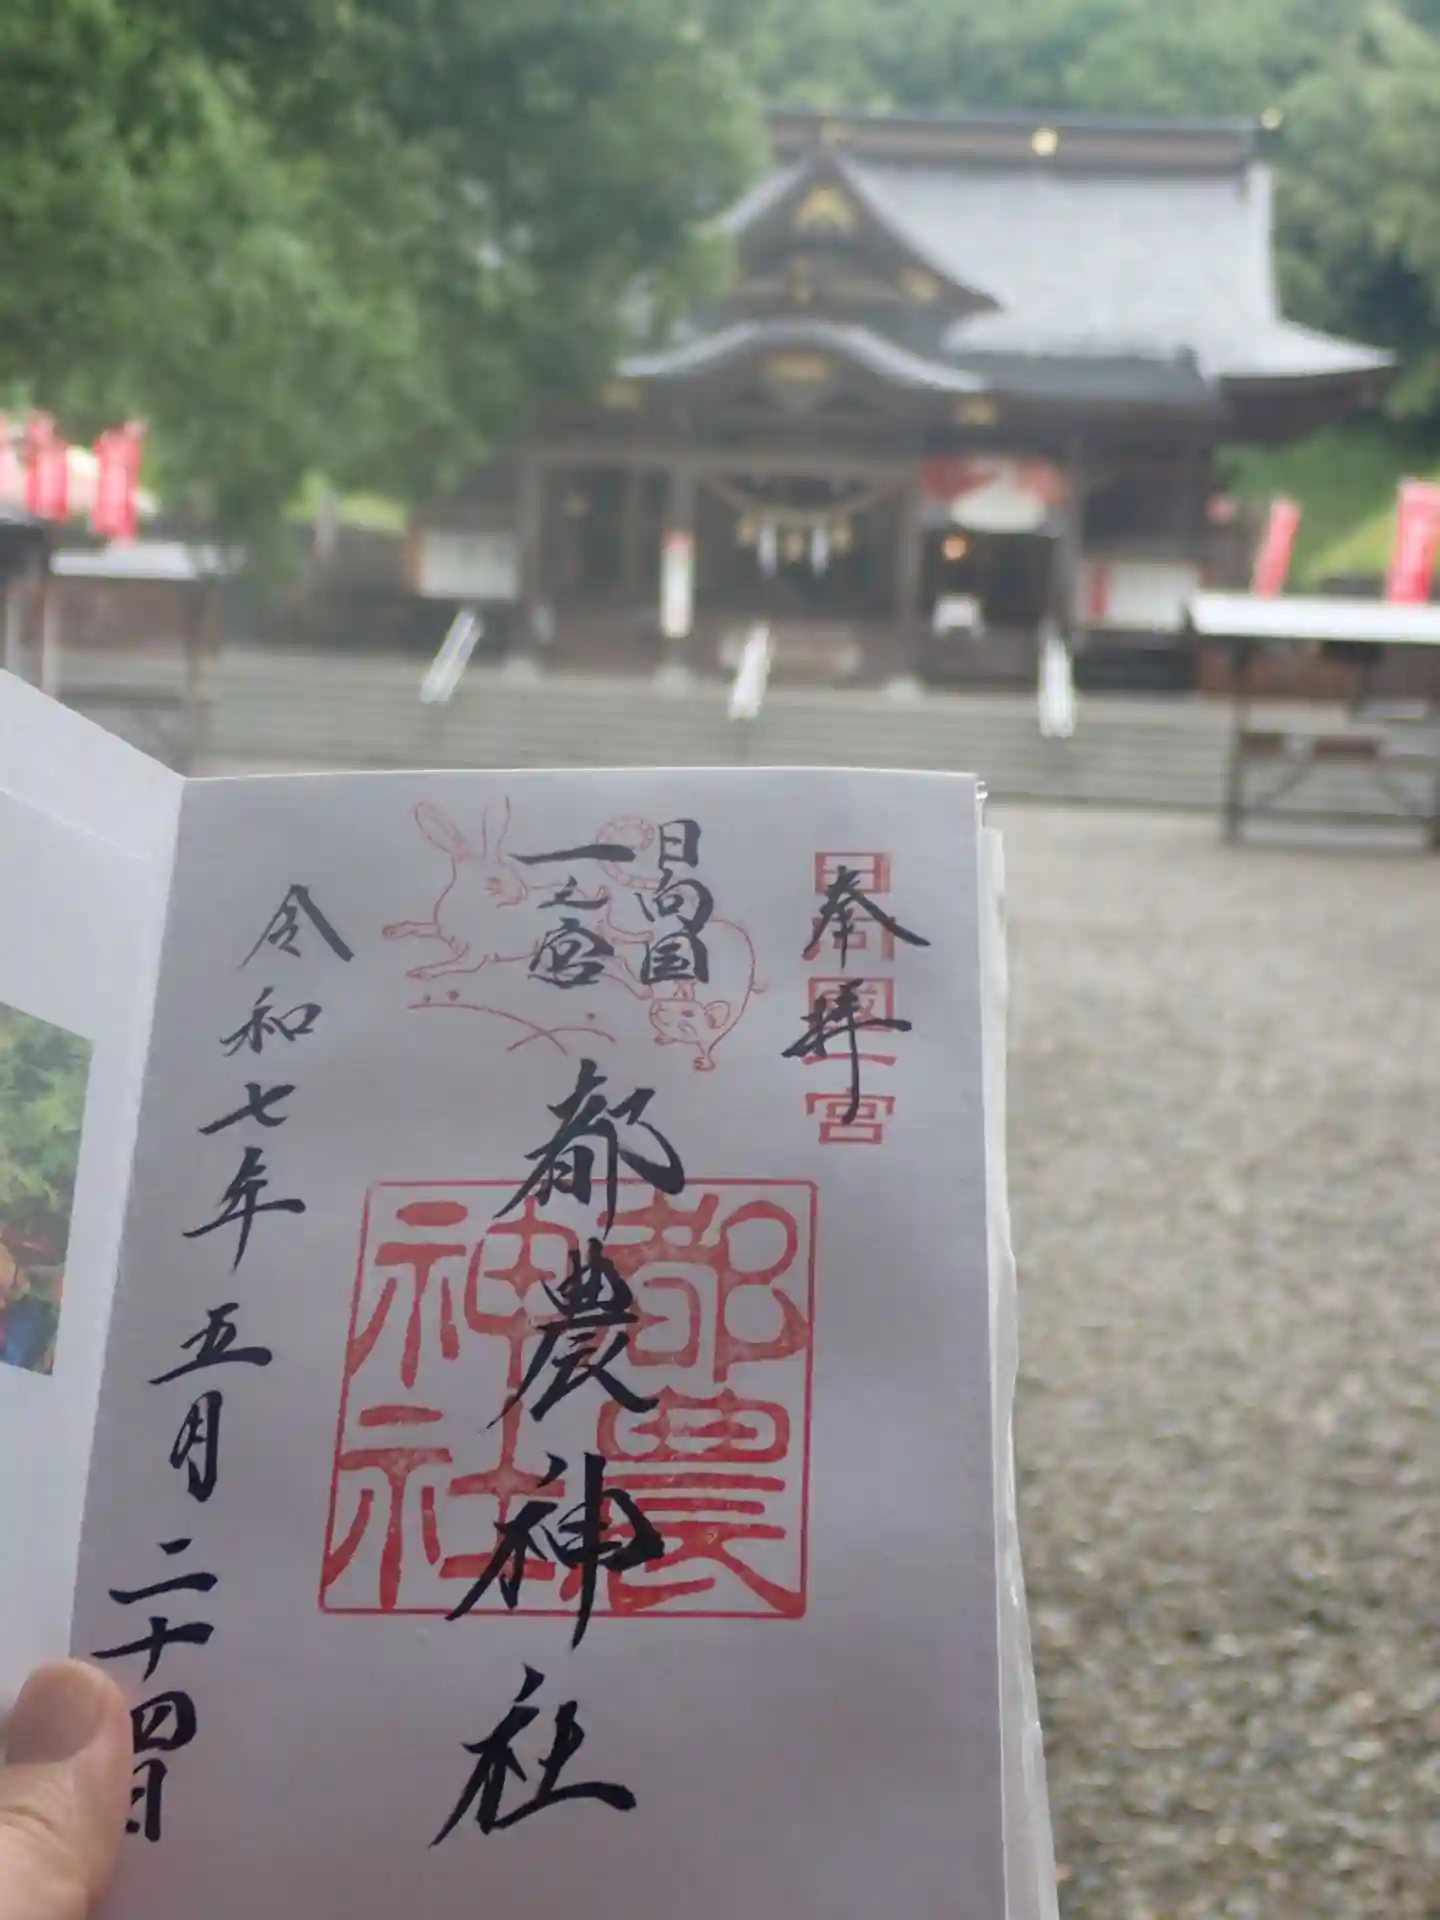 奉拝
日向國一宮
日向国
一之宮
都農神社
都農
神社
令和七年五月二十四日